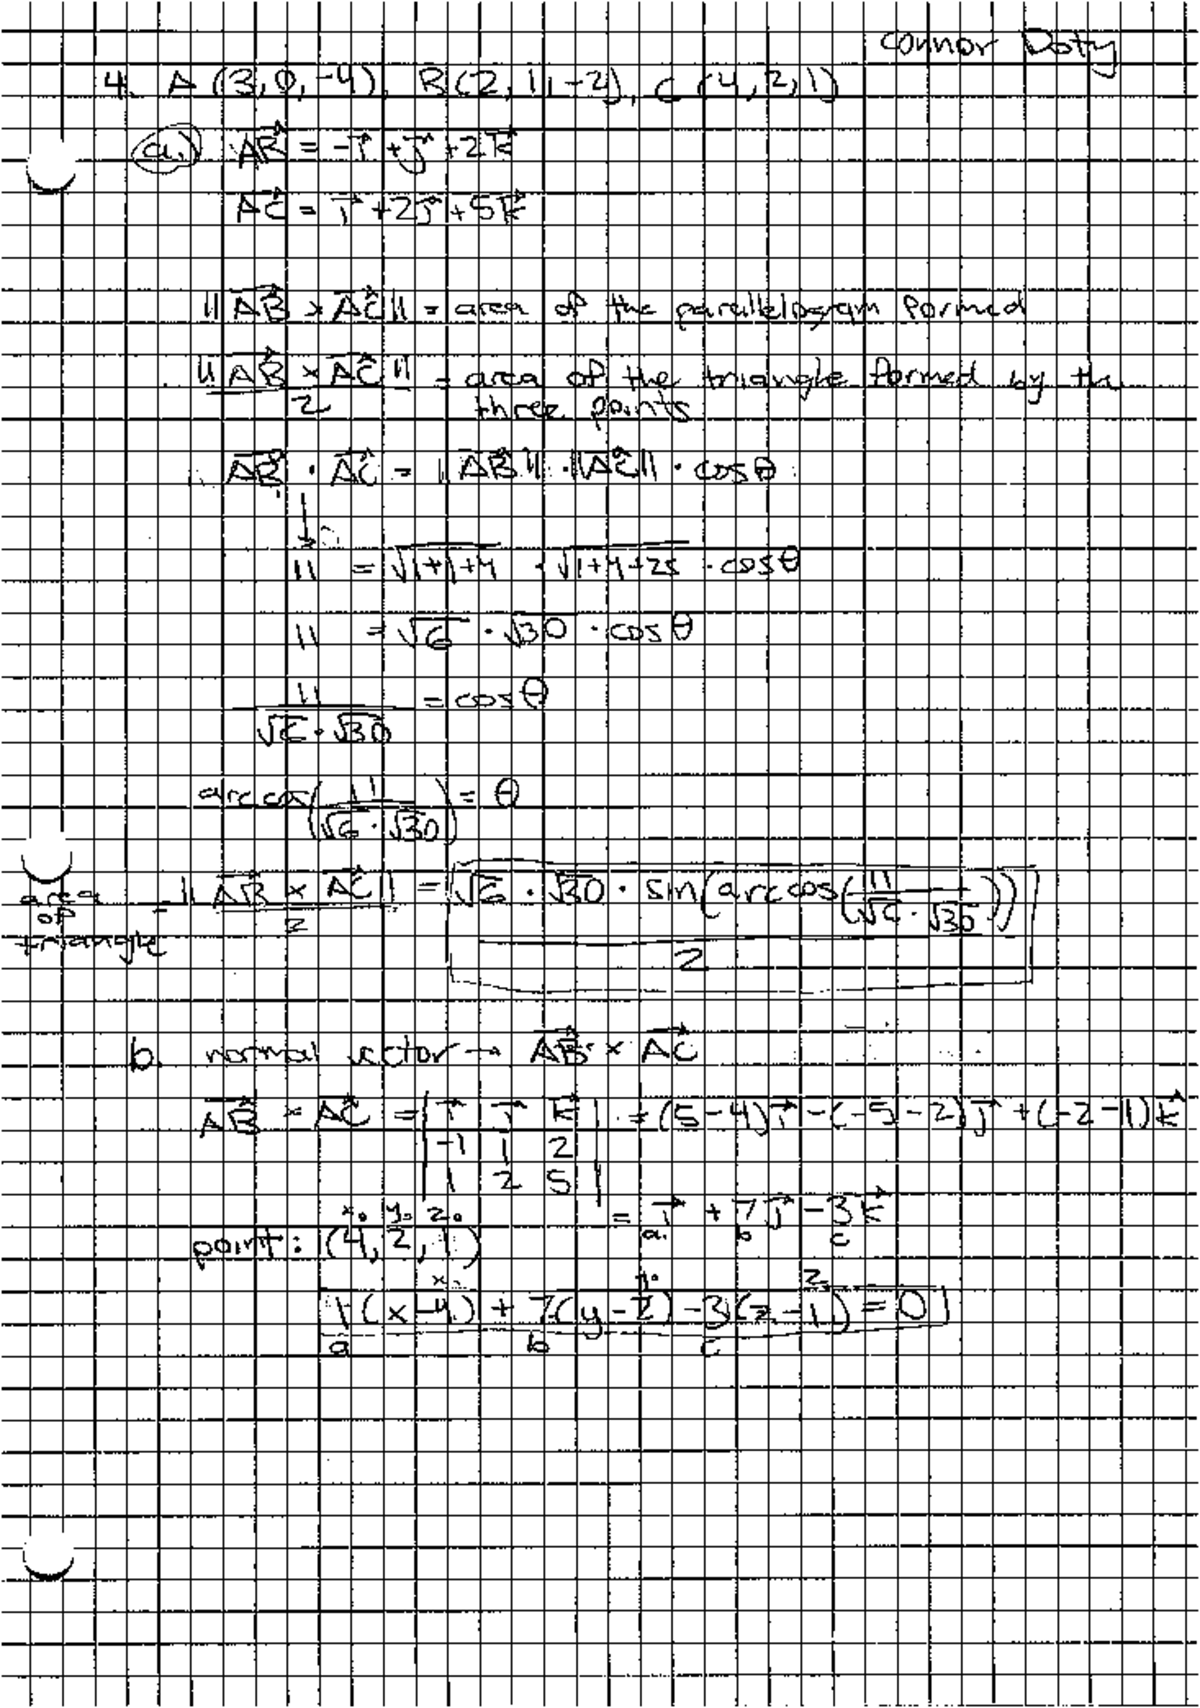 Connor Doty
4. A (3, 0, -4), B (2, 1, -2), C (4, 2, 1)
a.) AB⃗ = -i⃗ + j⃗ + 2k⃗
AC⃗ = i⃗ + 2j⃗ + 5k⃗
||AB⃗ × AC⃗|| = area of the parallelogram formed
||AB⃗ × AC⃗|| / 2 = area of the triangle formed by the
three points
AB⃗ · AC⃗ = ||AB⃗|| · ||AC⃗|| · cosθ
↓
11 = √(1+1+4) · √(1+4+25) · cosθ
11 = √6 · √30 · cosθ
11 / (√6 · √30) = cosθ
arccos(11 / (√6 · √30)) = θ
area of triangle = ||AB⃗ × AC⃗|| / 2 = √6 · √30 · sin(arccos(11 / (√6 · √30))) / 2
b. normal vector → AB⃗ × AC⃗
AB⃗ × AC⃗ = | i⃗ j⃗ k⃗ | = (5-4)i⃗ - (-5-2)j⃗ + (-2-1)k⃗
-1 1 2
1 2 5
= i⃗ + 7j⃗ - 3k⃗
a b c
x₀ y₀ z₀
point: (4, 2, 1)
x₀ y₀ z₀
1(x-4) + 7(y-2) - 3(z-1) = 0
a b c